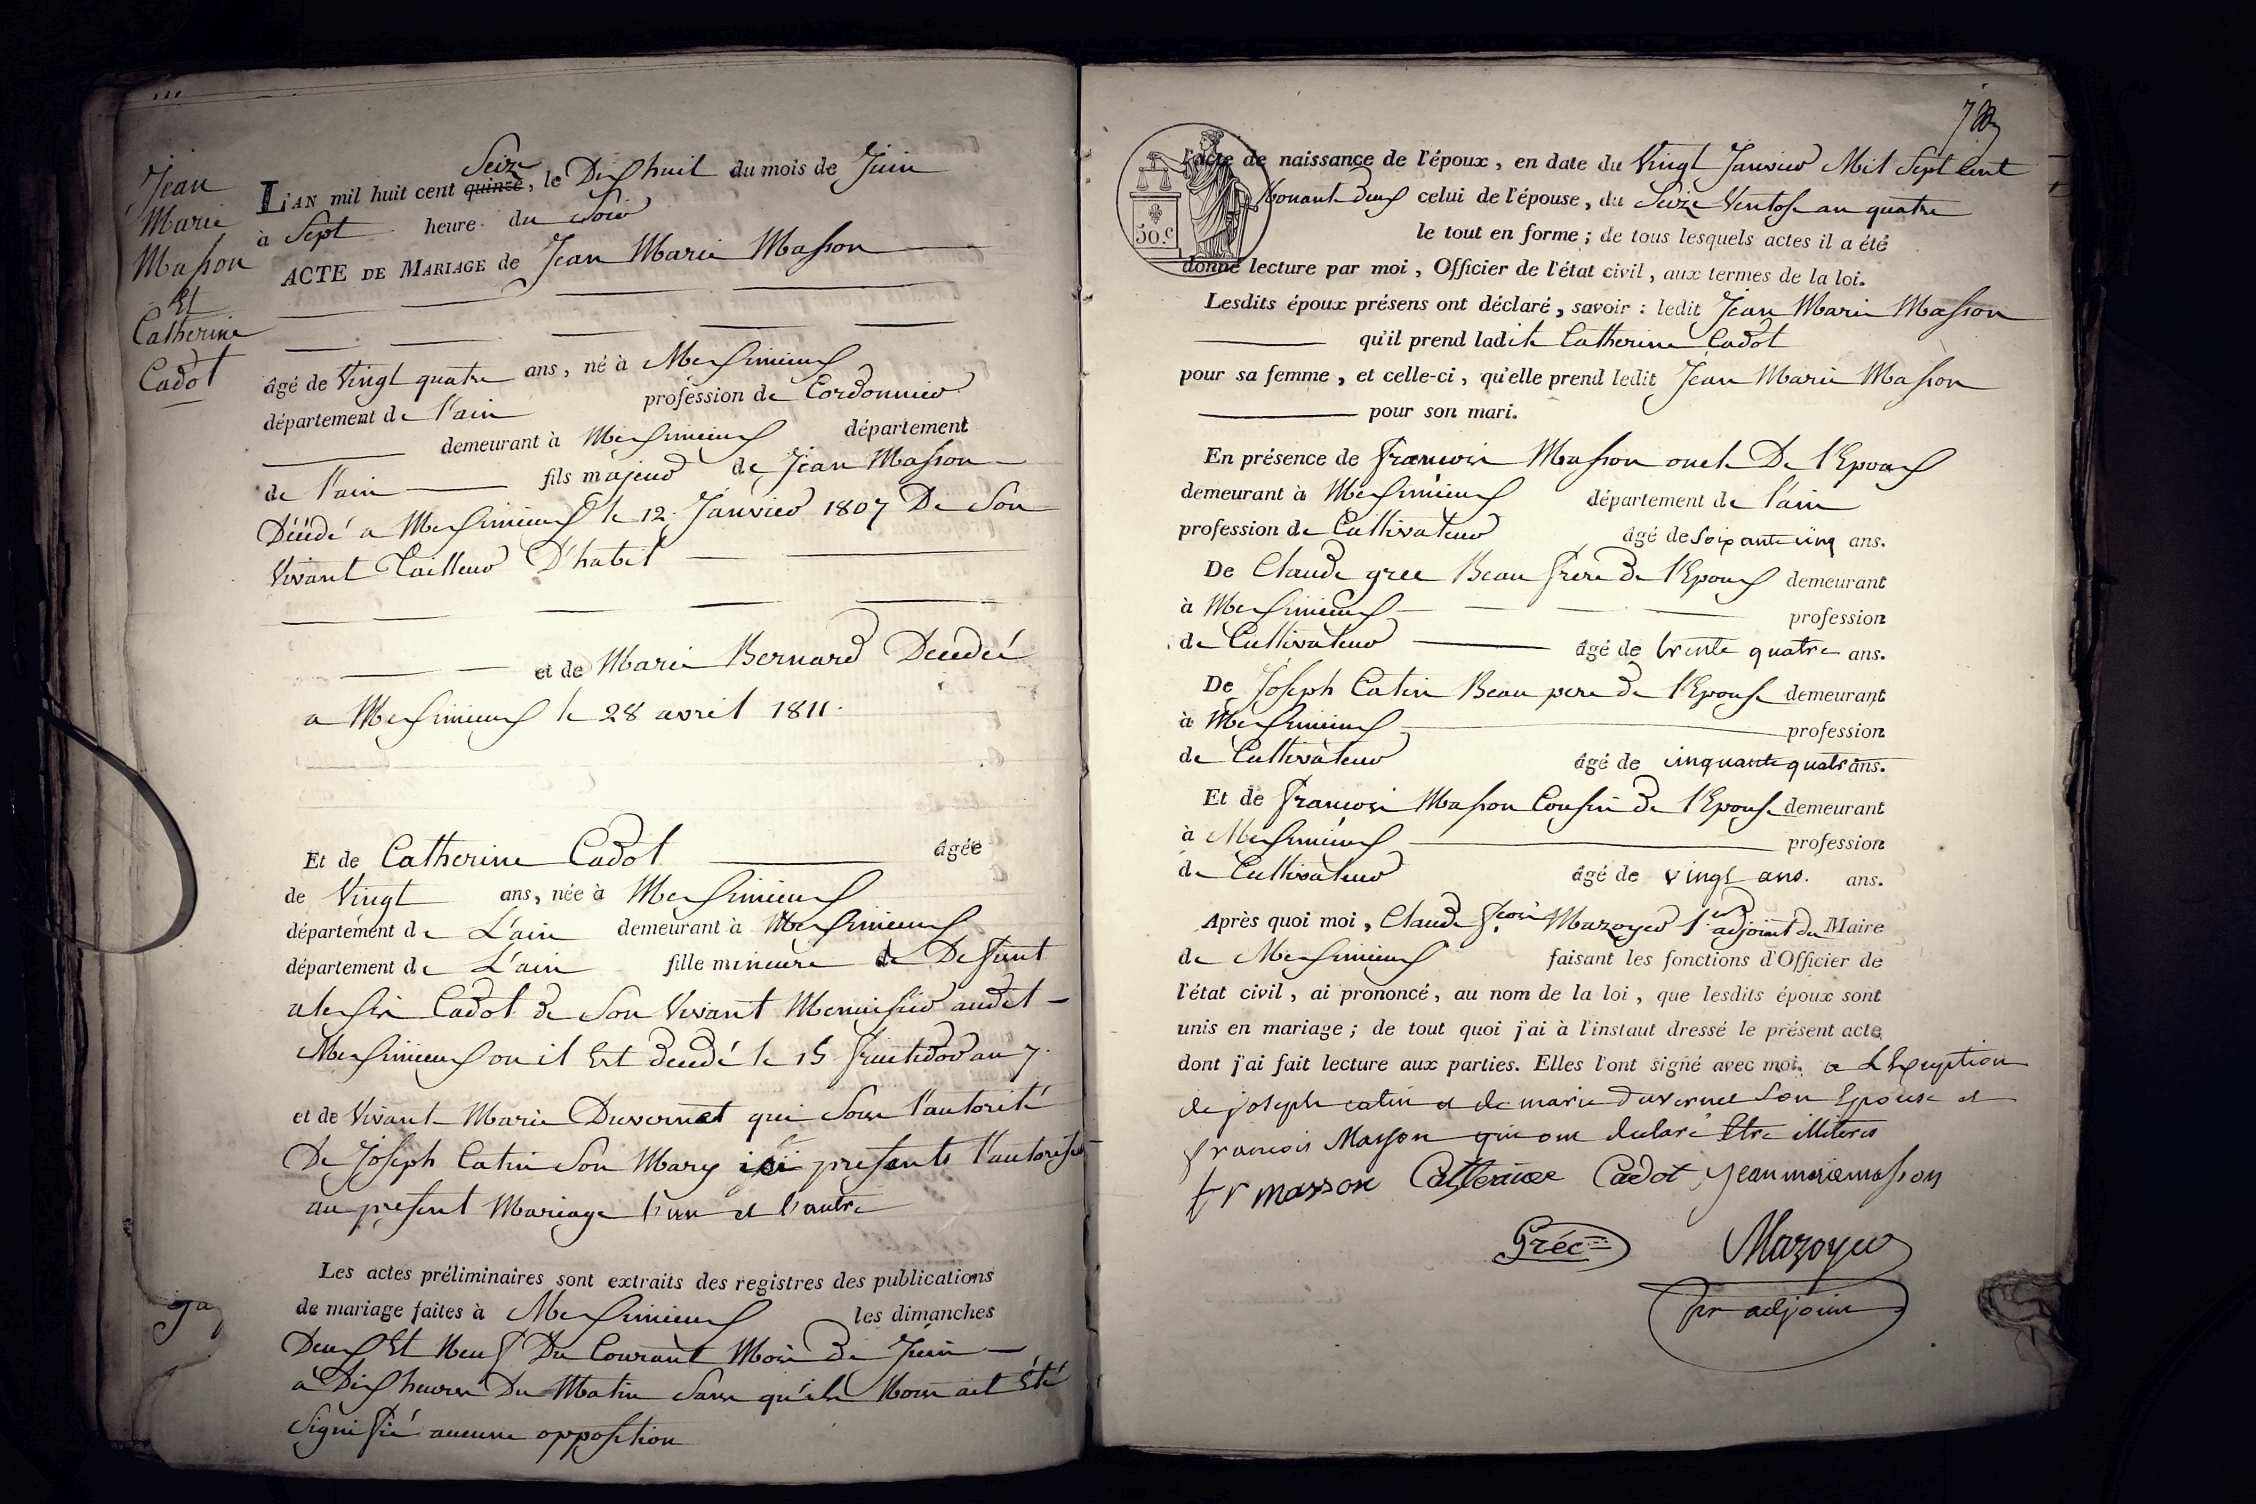 Jean
Marie
Masson
Et
Catherine
Cadot
L'AN mil huit cent quinze Seize, le Dix huit du mois de Juin
à Sept heure du Soir
ACTE DE MARIAGE de Jean Marie Masson
âgé de Vingt quatre ans, né à Meximieux
département de l'ain profession de Cordonnier
demeurant à Meximieux département
de l'ain fils majeur de Jean Masson
Décédé a Meximieux le 12 Janvier 1807 De Son
Vivant Tailleur D'habit
et de Marie Bernard Decedée
a Meximieux le 28 avril 1811.
Et de Catherine Cadot âgée
de Vingt ans, née à Meximieux
département de L'ain demeurant à Meximieux
département de L'ain fille mineure de Defunt
alexis Cadot de Son Vivant Menuisier audit
Meximieux ou il Est decedé le 15 fructidor an 7.
et de Vivant Marie Duvernet qui Sous l'autorité
De Joseph Catin Son Mary ici presents l'autorisent
au present Mariage l'un et l'autre
Les actes préliminaires sont extraits des registres des publications
de mariage faites à Meximieux les dimanches
Deux Et Neuf Du Courant Mois De Juin
à Dix heures Du Matin Sans qu'il Nous ait Eté
Signifié aucune opposition
l'acte de naissance de l'époux, en date du Vingt Janvier Mil Sept Cent
Nonant Deux celui de l'épouse, du Seize Ventose an quatre
50.c
le tout en forme; de tous lesquels actes il a été
donné lecture par moi, Officier de l'état civil, aux termes de la loi.
Lesdits époux présens ont déclaré, savoir : ledit Jean Marie Masson
qu'il prend ladite Catherine Cadot
pour sa femme, et celle-ci, qu'elle prend ledit Jean Marie Masson
pour son mari.
En présence de François Masson oncle De l'Epoux
demeurant à Meximieux département de l'ain
profession de Cultivateur âgé de Soixante cinq ans.
De Claude grec Beau frere De l'Epoux demeurant
à Meximieux profession
de Cultivateur âgé de trente quatre ans.
De Joseph Catin Beau pere De l'Epouse demeurant
à Meximieux profession
de Cultivateur âgé de cinquante quatre ans.
Et de François Masson Cousin De l'Epouse demeurant
à Meximieux profession
de Cultivateur âgé de vingt ans. ans.
Après quoi moi, Claude fçois Mazoyer 1er adjoint du Maire
de Meximieux faisant les fonctions d'Officier de
l'état civil, ai prononcé, au nom de la loi, que lesdits époux sont
unis en mariage; de tout quoi j'ai à l'instant dressé le présent acte
dont j'ai fait lecture aux parties. Elles l'ont signé avec moi. a L'Exception
de joseph catin et de marie duvernet Son Epouse et
françois Masson qui ont declaré Etre illiteres
fr masson Catterine Cadot jean marie masson
Gréc Mazoyer
pr adjoint